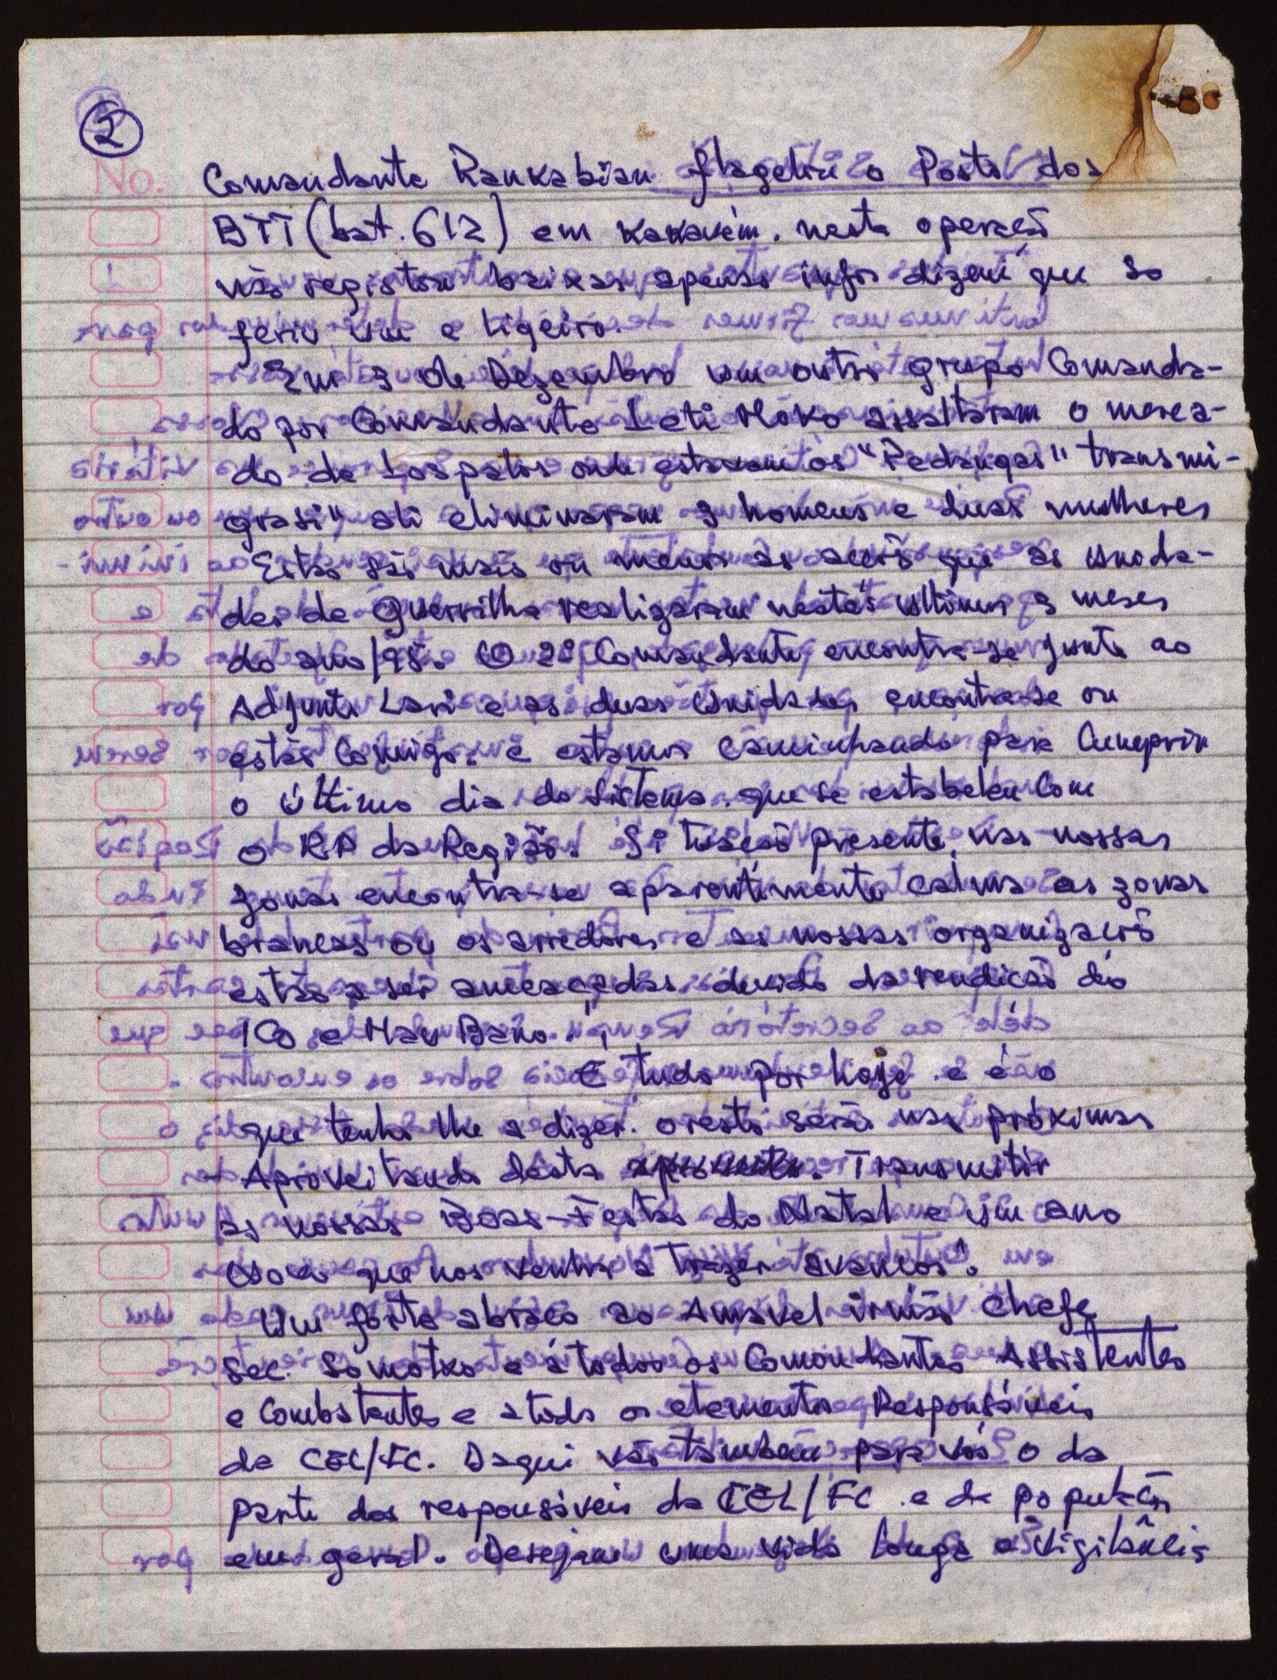 2
No.
Comandante Rankabian flagelou o Posto dos
BTT (bat. 612) em Kakavém. nesta operação
não registou baixas apenas infor dizem que so
feriu um e ligeiro.
Em 3 de Dezembro um outro grupo Comanda-
do por Comandante Leti Moko assaltaram o merca-
do de Lospalos onde estavam os "Pedangas" transmi-
grasi" ali eliminaram 3 homens e duas mulheres
Estas são mais ou menos as acções que as unida-
des de Guerrilha realizaram nestes ultimos 3 meses
do ano/98. O 2º Comandante encontra-se junto ao
Adjunto Lari e as duas Unidades encontra-se ou
estão comigo. e estamos caminhando para Cumprir
o último dia do Sistema que se estabeleu Com
o RP da Região. Situação presente nas nossas
zonas encontra-se aparentimente calma as zonas
brancas ou os arredores e as nossas organizacõ
estão a ser ameaçadas devido da rendição do
ICO e Mau Bano.
É tudo por hoje e é o
que tenho lhe a dizer. o resto será nas próximas
Aproveitando desta Transmitir
as nossas Boas-Festas do Natal e um ano
que nos venha a trazer avancos.
Um forte abraco ao Amavel irmão Chefe
Sec. Somotxo e á todos os Comandantes Assistentes
e Combatentes e a todo os elementos Responsáveis
da CEL/FC. Daqui vão tambem para vós o da
parte dos responsáveis da CEL/FC e da população
em geral. Desejam uma vida longa e Vigilância